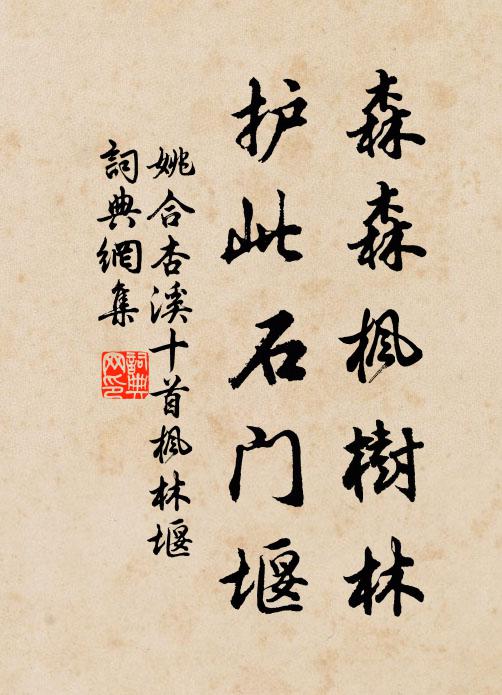 森森枫樹林
护此石门堰
姚合杏溪十首枫林堰
詞典網集
詞典网印